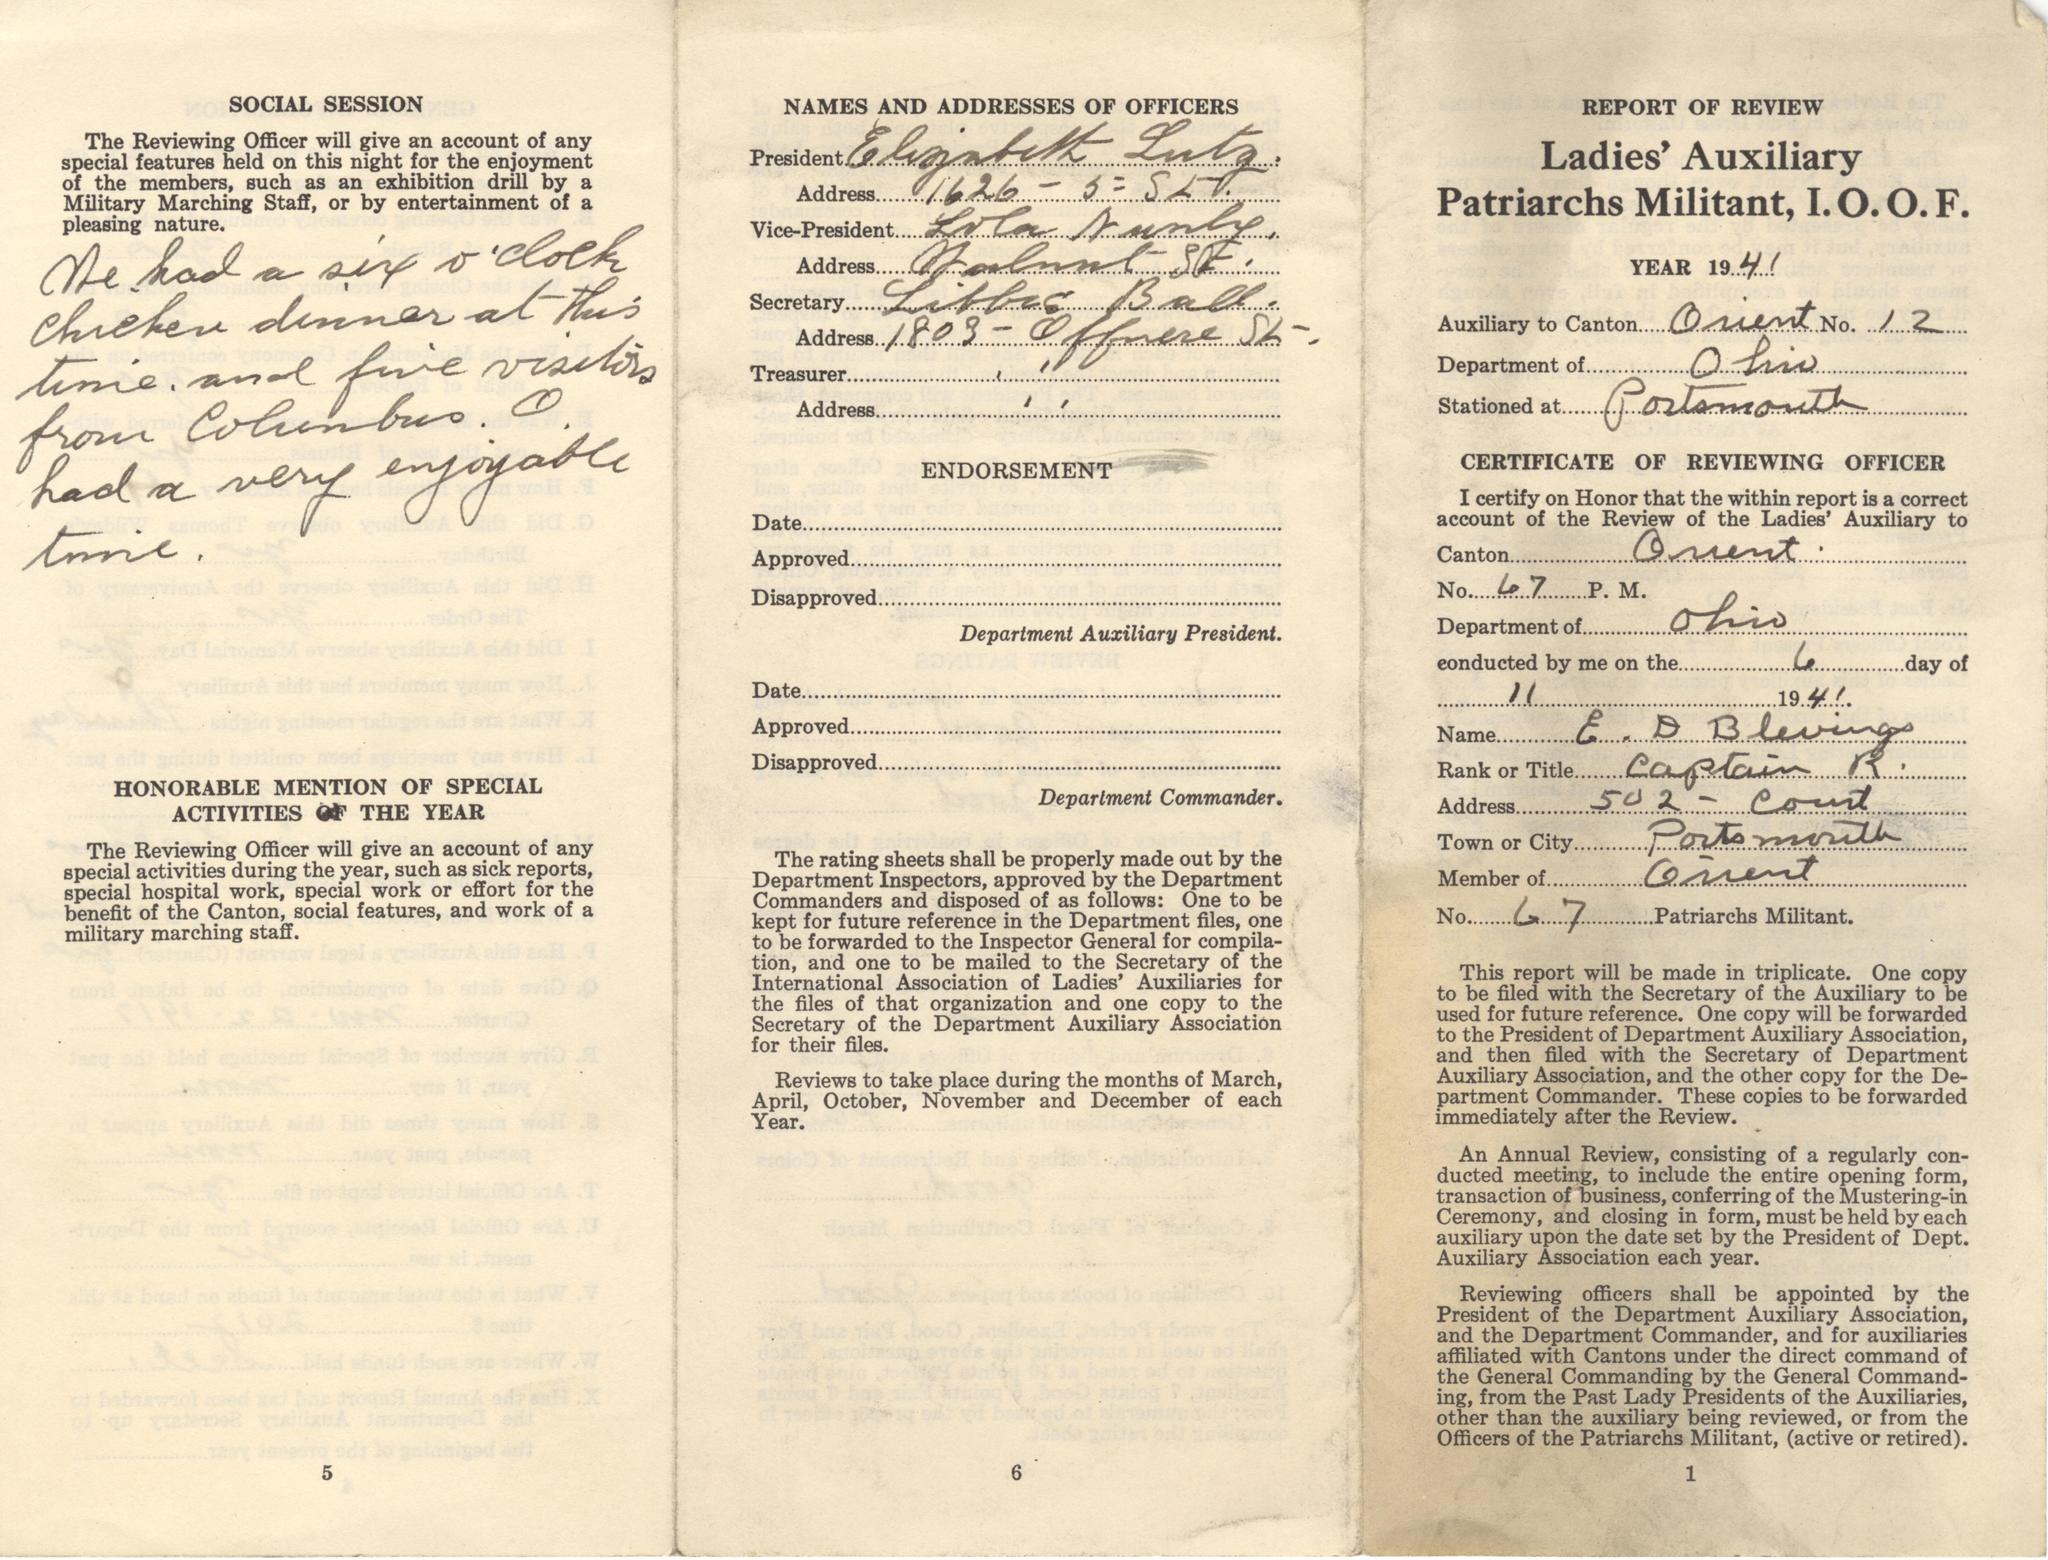 SOCIAL SESSION
The Reviewing Officer will give an account of any
special features held on this night for the enjoyment
of the members, such as an exhibition drill by a
Military Marching Staff, or by entertainment of a
pleasing nature.
We had a six o'clock
chicken dinner at this
time. and five visitors
from Columbus. O.
had a very enjoyable
time.
HONORABLE MENTION OF SPECIAL
ACTIVITIES OF THE YEAR
The Reviewing Officer will give an account of any
special activities during the year, such as sick reports,
special hospital work, special work or effort for the
benefit of the Canton, social features, and work of a
military marching staff.
5
NAMES AND ADDRESSES OF OFFICERS
President Elizabeth Lutz.
Address 1626 - 5= St.
Vice-President Lola Nunly.
Address Walnut St.
Secretary Libbie Ball.
Address 1803 - Offnere St.
Treasurer " "
Address " "
ENDORSEMENT
Date
Approved
Disapproved
Department Auxiliary President.
Date
Approved
Disapproved
Department Commander.
The rating sheets shall be properly made out by the
Department Inspectors, approved by the Department
Commanders and disposed of as follows: One to be
kept for future reference in the Department files, one
to be forwarded to the Inspector General for compila-
tion, and one to be mailed to the Secretary of the
International Association of Ladies' Auxiliaries for
the files of that organization and one copy to the
Secretary of the Department Auxiliary Association
for their files.
Reviews to take place during the months of March,
April, October, November and December of each
Year.
6
REPORT OF REVIEW
Ladies' Auxiliary
Patriarchs Militant, I. O. O. F.
YEAR 1941
Auxiliary to Canton Orient No. 12
Department of Ohio
Stationed at Portsmouth
CERTIFICATE OF REVIEWING OFFICER
I certify on Honor that the within report is a correct
account of the Review of the Ladies' Auxiliary to
Canton Orient.
No. 67 P. M.
Department of Ohio
conducted by me on the 6 day of
11 1941.
Name E. D Blevings
Rank or Title Captain R.
Address 502 - Court
Town or City Portsmouth
Member of Orient
No. 67 Patriarchs Militant.
This report will be made in triplicate. One copy
to be filed with the Secretary of the Auxiliary to be
used for future reference. One copy will be forwarded
to the President of Department Auxiliary Association,
and then filed with the Secretary of Department
Auxiliary Association, and the other copy for the De-
partment Commander. These copies to be forwarded
immediately after the Review.
An Annual Review, consisting of a regularly con-
ducted meeting, to include the entire opening form,
transaction of business, conferring of the Mustering-in
Ceremony, and closing in form, must be held by each
auxiliary upon the date set by the President of Dept.
Auxiliary Association each year.
Reviewing officers shall be appointed by the
President of the Department Auxiliary Association,
and the Department Commander, and for auxiliaries
affiliated with Cantons under the direct command of
the General Commanding by the General Command-
ing, from the Past Lady Presidents of the Auxiliaries,
other than the auxiliary being reviewed, or from the
Officers of the Patriarchs Militant, (active or retired).
1